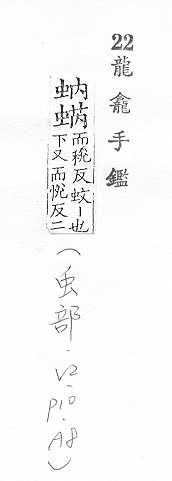 22 龍龕手鑑
蚋蜹而稅反蚊丨也
下又而悅反二
(虫部.V2.P10.A8)